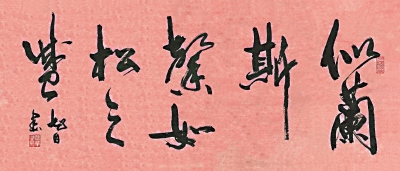 似蘭
斯
馨如
松之
盛